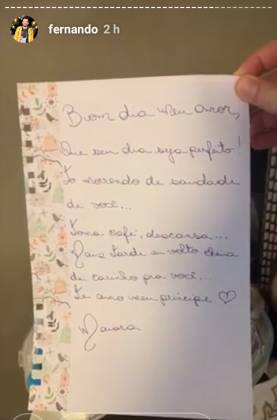 fernando 2 h
Bom dia meu amor,
Que seu dia seja perfeito!
To morrendo de saudade
de você...
Toma café, descansa...
Mais tarde eu volto cheia
de carinho pra você...
Te amo meu príncipe ♡
Maiara